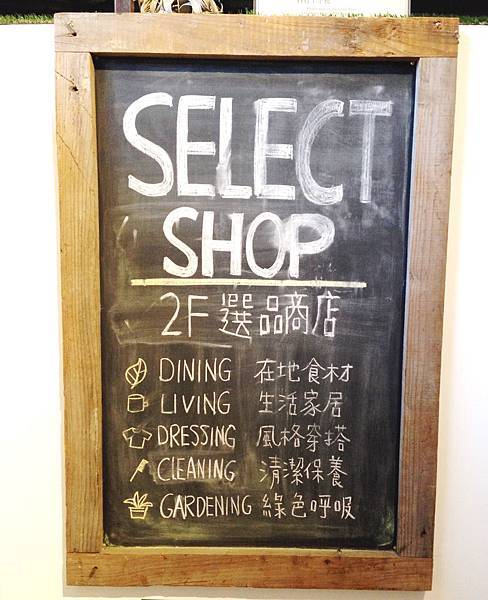 SELECT
SHOP
2F 選品商店
DINING 在地食材
LIVING 生活家居
DRESSING 風格穿搭
CLEANING 清潔保養
GARDENING 綠色呼吸